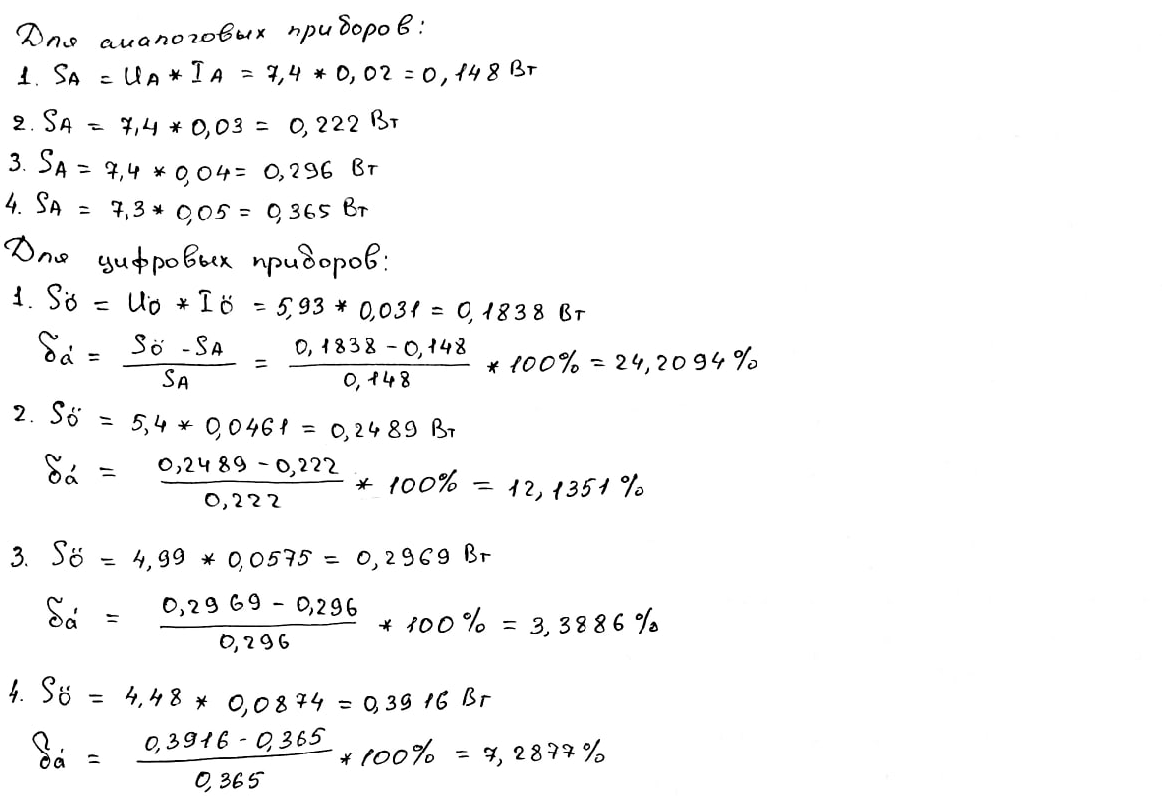 Для аналоговых приборов:
1. SA = UA * IA = 7,4 * 0,02 = 0,148 Вт
2. SA = 7,4 * 0,03 = 0,222 Вт
3. SA = 7,4 * 0,04 = 0,296 Вт
4. SA = 7,3 * 0,05 = 0,365 Вт
Для цифровых приборов:
1. Sö = Uö * Iö = 5,93 * 0,031 = 0,1838 Вт
δá = (Sö - SA) / SA = (0,1838 - 0,148) / 0,148 * 100% = 24,2094 %
2. Sö = 5,4 * 0,0461 = 0,2489 Вт
δá = (0,2489 - 0,222) / 0,222 * 100% = 12,1351 %
3. Sö = 4,99 * 0,0575 = 0,2969 Вт
δá = (0,2969 - 0,296) / 0,296 * 100 % = 3,3886 %
4. Sö = 4,48 * 0,0874 = 0,3916 Вт
δá = (0,3916 - 0,365) / 0,365 * 100% = 7,2877 %